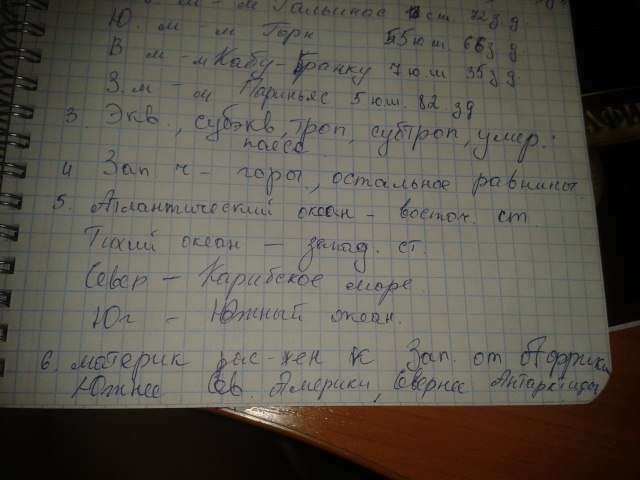 м - м Гальинас ст. 72 з д.
Ю. м - м Горн 55 ю ш. 66 з д.
В м - м Кабу-Бранку 7 ю ш 35 з д.
З. м - м Париньяс 5 ю ш. 82 з д
3. Экв., субэкв, троп, субтроп, умер.:
пояса.
4 Зап ч - горы, остальное равнины.
5. Атлантический океан - восточ. ст.
Тихий океан - запад. ст.
Север - Карибское море.
Юг - Южный океан.
6. материк рас-жен к Зап. от Африки
Южнее Св. Америки, Севернее Антарктиды